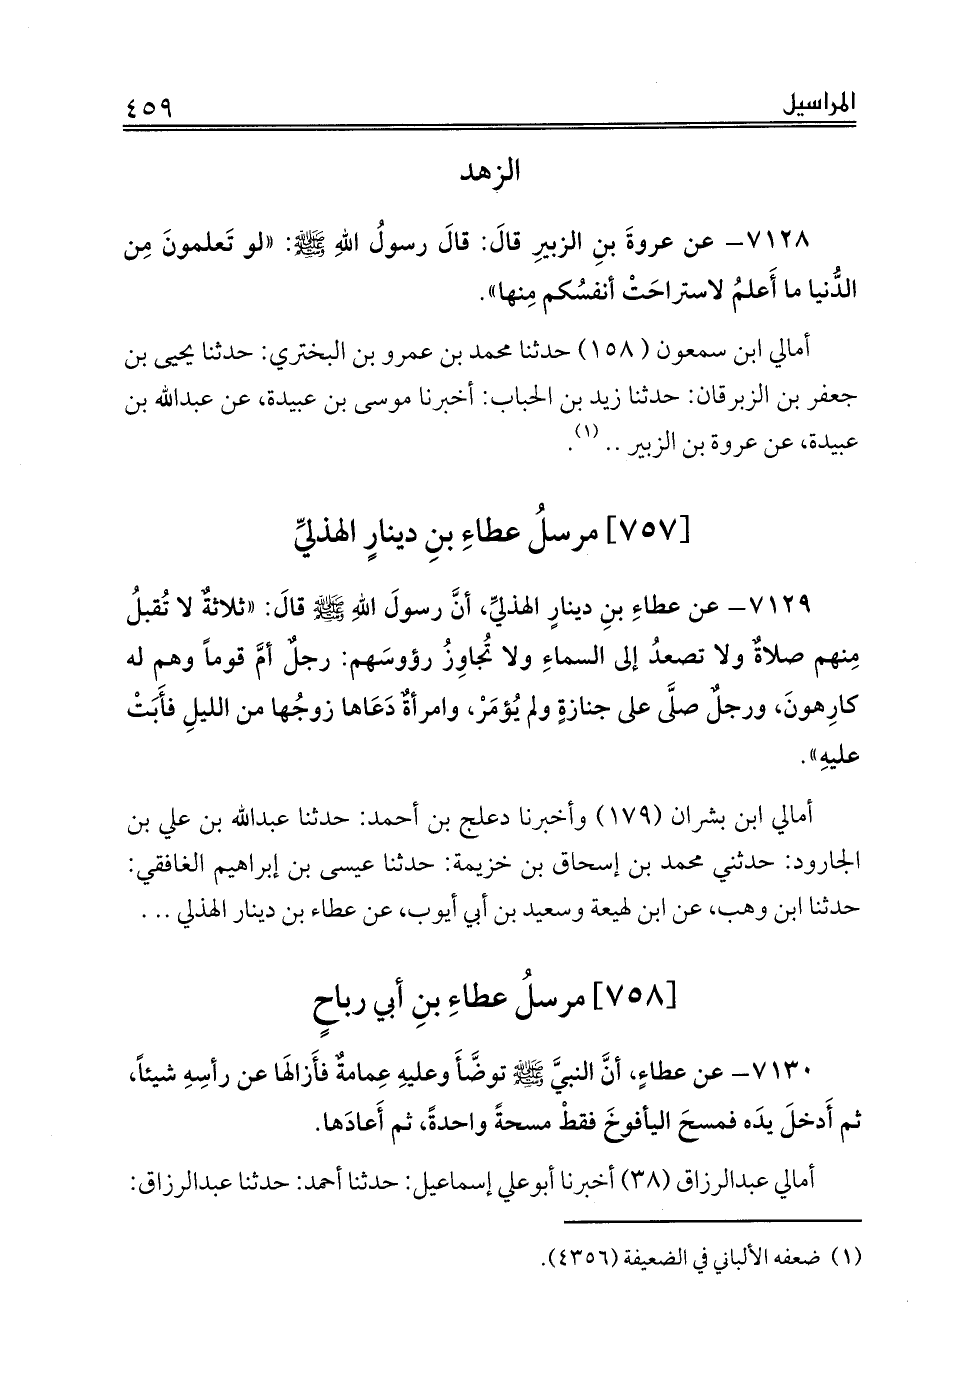 المراسيل ٤٥٩
الزهد
٧١٢٨– عن عروةَ بنِ الزبيرِ قالَ: قالَ رسولُ اللهِ ﷺ: «لو تَعلمونَ مِن
الدُّنيا ما أَعلمُ لاستراحَتْ أنفسُكم مِنها».
أمالي ابن سمعون (١٥٨) حدثنا محمد بن عمرو بن البختري: حدثنا يحيى بن
جعفر بن الزبرقان: حدثنا زيد بن الحباب: أخبرنا موسى بن عبيدة، عن عبدالله بن
عبيدة، عن عروة بن الزبير .. (١).
[٧٥٧] مرسلُ عطاءِ بنِ دينارٍ الهذليِّ
٧١٢٩– عن عطاءِ بنِ دينارٍ الهذليِّ، أنَّ رسولَ اللهِ ﷺ قالَ: «ثلاثةٌ لا تُقبلُ
مِنهم صلاةٌ ولا تصعدُ إلى السماءِ ولا تُجاوِزُ رؤوسَهم: رجلٌ أمَّ قوماً وهم له
كارِهونَ، ورجلٌ صلَّى على جنازةٍ ولم يُؤمَرْ، وامرأةٌ دَعَاها زوجُها من الليلِ فأَبَتْ
عليهِ».
أمالي ابن بشران (١٧٩) وأخبرنا دعلج بن أحمد: حدثنا عبدالله بن علي بن
الجارود: حدثني محمد بن إسحاق بن خزيمة: حدثنا عيسى بن إبراهيم الغافقي:
حدثنا ابن وهب، عن ابن لهيعة وسعيد بن أبي أيوب، عن عطاء بن دينار الهذلي ...
[٧٥٨] مرسلُ عطاءِ بنِ أبي رباحٍ
٧١٣٠– عن عطاءٍ، أنَّ النبيَّ ﷺ توضَّأَ وعليهِ عِمامةٌ فأَزالَها عن رأسِهِ شيئاً،
ثم أَدخلَ يدَه فمسحَ اليأفوخَ فقطْ مسحةً واحدةً، ثم أعادَها.
أمالي عبدالرزاق (٣٨) أخبرنا أبو علي إسماعيل: حدثنا أحمد: حدثنا عبدالرزاق:
(١) ضعفه الألباني في الضعيفة (٤٣٥٦).